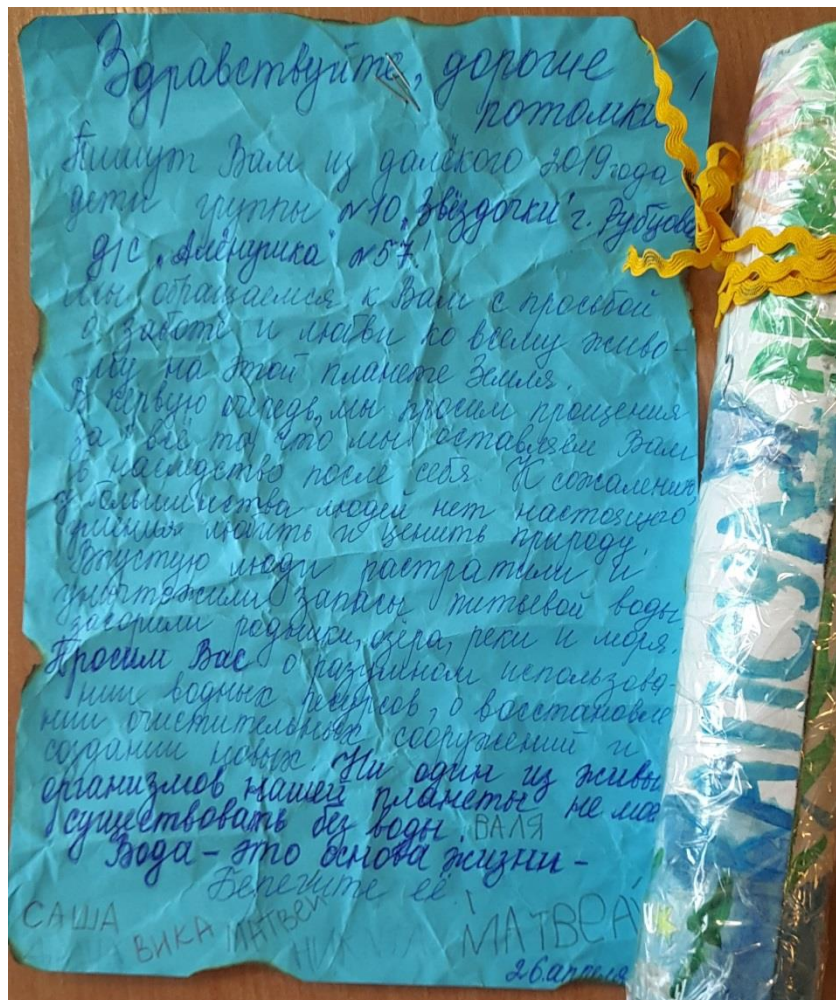 Здравствуйте, дорогие
потомки!
Пишут Вам из далёкого 2019 года
дети группы №10 „Звёздочки" г. Рубцовс
д/с „Алёнушка" №57!
Мы обращаемся к Вам с просьбой
о заботе и любви ко всему живо-
му на этой планете Земля.
В первую очередь, мы просим прощения
за всё то, что мы оставляем Вам
в наследство после себя. К сожалению
у большинства людей нет настоящего
умения любить и ценить природу.
Впустую люди растратили и
уничтожили запасы питьевой воды
засорили родники, озёра, реки и моря.
Просим Вас о разумном использова-
нии водных ресурсов, о восстановле
нии очистительных сооружений и
создании новых. Ни один из живы
организмов нашей планеты не мож
существовать без воды.
ВАЛЯ
Вода – это основа жизни –
Берегите её!
САША
ВИКА
МАТВЕЙ
МАТВЕЙ
26 апреля
КАПСУЛА